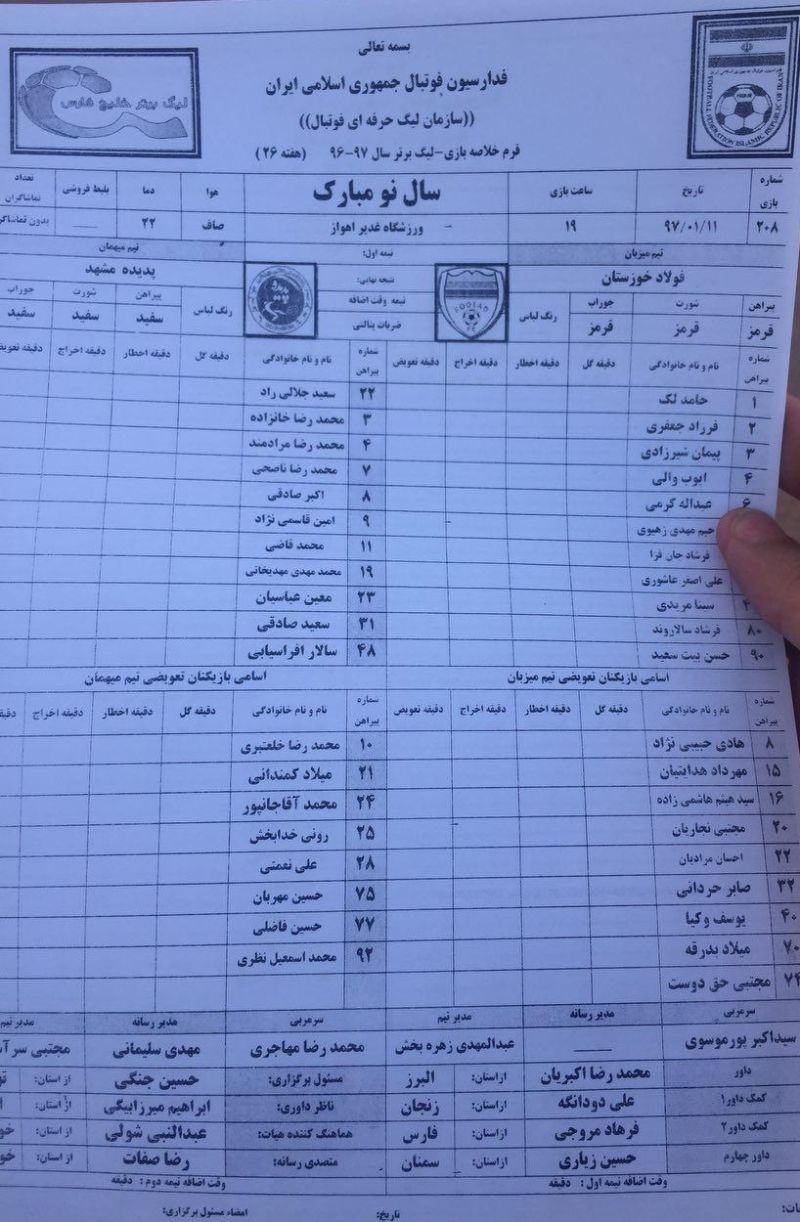 بسمه تعالی
فدارسیون فوتبال جمهوری اسلامی ایران
((سازمان لیگ حرفه ای فوتبال))
فرم خلاصه بازی-لیگ برتر سال ۹۷-۹۶ (هفته ۲۶)
لیگ برتر خلیج فارس
FOOTBALL FEDERATION ISLAMIC REPUBLIC OF IRAN
شماره بازی تاریخ ساعت بازی سال نو مبارک هوا دما بلیط فروشی تعداد تماشاگران
۲۰۸ ۹۷/۰۱/۱۱ ۱۹ ورزشگاه غدیر اهواز صاف ۲۲ بدون تماشاگر
تیم میزبان نیمه اول: تیم میهمان
فولاد خوزستان FOOLAD نتیجه نهایی: پدیده مشهد
پیراهن شورت جوراب رنگ لباس نیمه وقت اضافه رنگ لباس پیراهن شورت جوراب
قرمز قرمز قرمز ضربات پنالتی سفید سفید سفید
شماره پیراهن نام و نام خانوادگی دقیقه گل دقیقه اخطار دقیقه اخراج دقیقه تعویض شماره پیراهن نام و نام خانوادگی دقیقه گل دقیقه اخطار دقیقه اخراج دقیقه تعویض
۱ حامد لک ۲۲ سعید جلالی راد
۲ فرزاد جعفری ۳ محمد رضا خانزاده
۳ پیمان شیرزادی ۴ محمد رضا مرادمند
۴ ایوب والی ۷ محمد رضا ناصحی
۶ عبداله کرمی ۸ اکبر صادقی
رحیم مهدی زهیوی ۹ امین قاسمی نژاد
فرشاد جان فزا ۱۱ محمد قاضی
علی اصغر عاشوری ۱۹ محمد مهدی مهدیخانی
سینا مریدی ۲۳ معین عباسیان
۸۰ فرشاد سالاروند ۳۱ سعید صادقی
۹۰ حسن بیت سعید ۴۸ سالار افراسیابی
اسامی بازیکنان تعویضی تیم میزبان اسامی بازیکنان تعویضی تیم میهمان
شماره پیراهن نام و نام خانوادگی دقیقه گل دقیقه اخطار دقیقه اخراج دقیقه تعویض شماره پیراهن نام و نام خانوادگی دقیقه گل دقیقه اخطار دقیقه اخراج دقیقه
۸ هادی حبیبی نژاد ۱۰ محمد رضا خلعتبری
۱۵ مهرداد هدایتیان ۲۱ میلاد کمندانی
۱۶ سید هیثم هاشمی زاده ۲۴ محمد آقاجانپور
۲۰ مجتبی نجاریان ۲۵ رونی خدابخش
۲۲ احسان مرادیان ۲۸ علی نعمتی
۳۲ صابر حردانی ۷۵ حسین مهربان
۴۰ یوسف وکیا ۷۷ حسین فاضلی
۷۰ میلاد بدرقه ۹۲ محمد اسمعیل نظری
۷۴ مجتبی حق دوست
سرمربی مدیر رسانه مدیر تیم سرمربی مدیر رسانه مدیر تیم
سیداکبر پورموسوی عبدالمهدی زهره بخش محمد رضا مهاجری مهدی سلیمانی مجتبی
داور محمد رضا اکبریان ازاستان: البرز مسئول برگزاری: حسین جنگی از استان:
کمک داور۱ علی دودانگه ازاستان: زنجان ناظر داوری: ابراهیم میرزابیگی از استان:
کمک داور۲ فرهاد مروجی ازاستان: فارس هماهنگ کننده هیات: عبدالنبی شولی از استان:
داور چهارم حسین زیاری ازاستان: سمنان متصدی رسانه: رضا صفات از استان:
وقت اضافه نیمه اول : دقیقه وقت اضافه نیمه دوم : دقیقه
تاریخ: امضاء مسئول برگزاری: